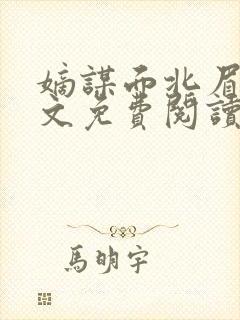 嫡謀而北眉
文免費閱讀
馬明宇